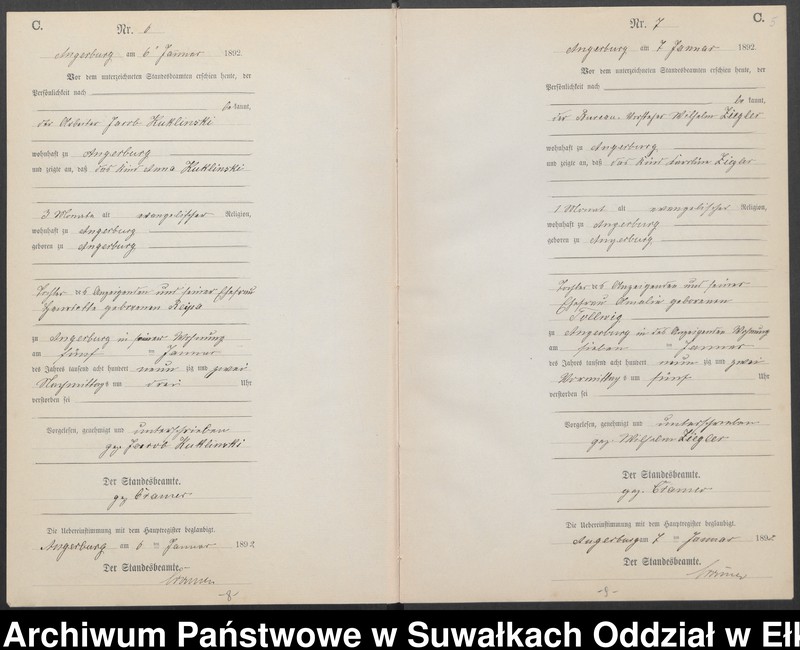 C.
Nr. 6
Angerburg am 6ten Januar 1892.
Vor dem unterzeichneten Standesbeamten erschien heute, der
Persönlichkeit nach
be kannt,
der Arbeiter Jacob Kuklinski
wohnhaft zu Angerburg
und zeigte an, daß das Kind Anna Kuklinski
3 Monate alt evangelischer Religion,
wohnhaft zu Angerburg
geboren zu Angerburg
Tochter des Anzeigenden und seiner Ehefrau
Henriette geborenen
zu Angerburg in seiner Wohnung
am fünf ten Januar
des Jahres tausend acht hundert neun zig und zwei
Nachmittags um drei Uhr
verstorben sei
Vorgelesen, genehmigt und unterschrieben
gez. Jacob Kuklinski
Der Standesbeamte.
gez Cramer
Die Uebereinstimmung mit dem Hauptregister beglaubigt.
Angerburg am 6 ten Januar 1892
Der Standesbeamte.
Cramer
-8-
C. 5
Nr. 7
Angerburg am 7 Januar 1892
Vor dem unterzeichneten Standesbeamten erschien heute, der
Persönlichkeit nach
be kannt,
der Bureau-Vorsteher Wilhelm Ziegler
wohnhaft zu Angerburg
und zeigte an, daß das Kind Caroline Ziegler
1 Monat alt evangelischer Religion,
wohnhaft zu Angerburg
geboren zu Angerburg
Tochter des Anzeigenden und seiner
Ehefrau Amalie geborenen
zu Angerburg in des Anzeigenden Wohnung
am sieben ten Januar
des Jahres tausend acht hundert neun zig und zwei
Vormittags um fünf Uhr
verstorben sei
Vorgelesen, genehmigt und unterschrieben
gez. Wilhelm Ziegler
Der Standesbeamte.
gez. Cramer
Die Uebereinstimmung mit dem Hauptregister beglaubigt.
Angerburg am 7 ten Januar 1892
Der Standesbeamte.
Cramer
-9-
Archiwum Państwowe w Suwałkach Oddział w Ełk